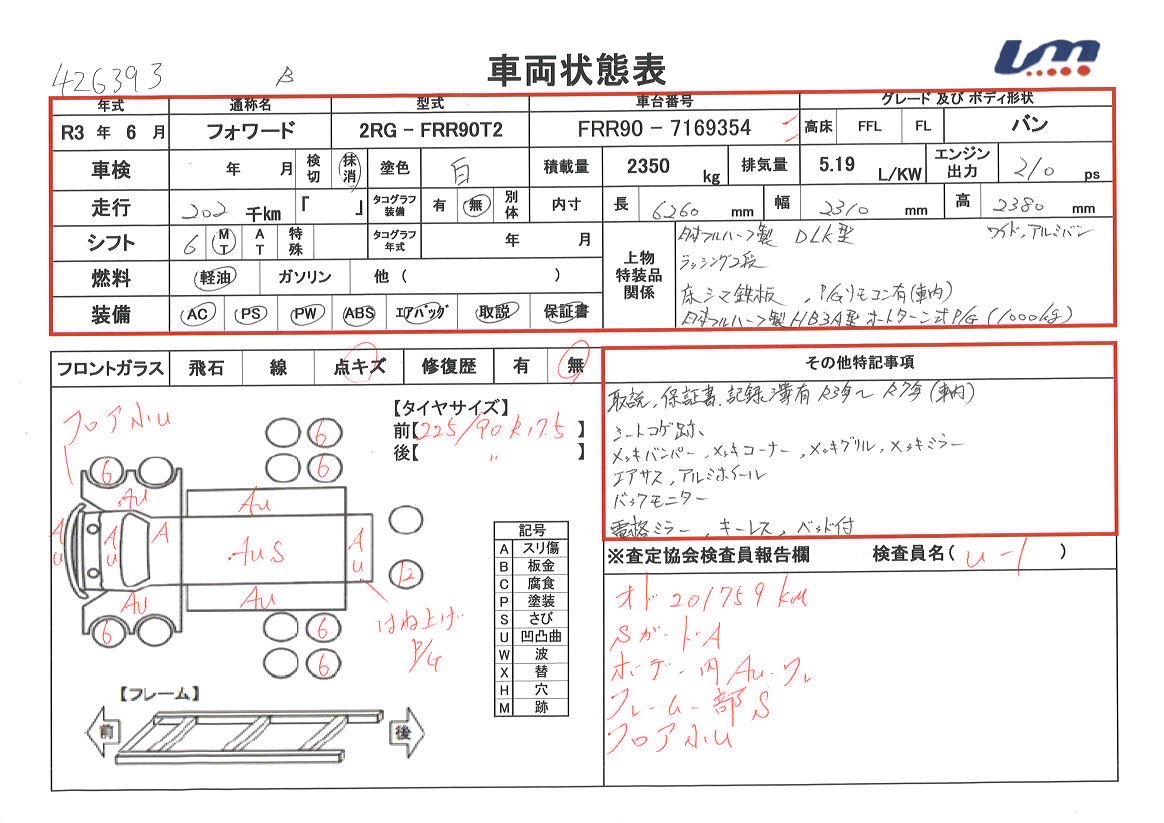 426393 B 車両状態表 um
年式 通称名 型式 車台番号 グレード 及び ボディ形状
R3 年 6 月 フォワード 2RG - FRR90T2 FRR90 - 7169354 高床 FFL FL バン
車検 年 月 検切 抹消 塗色 白 積載量 2350 kg 排気量 5.19 L/KW エンジン出力 210 ps
走行 202 千km 『 』 タコグラフ装備 有 無 別体 内寸 長 6260 mm 幅 2310 mm 高 2380 mm
シフト 6 MT AT 特殊 タコグラフ年式 年 月 上物特装品関係 日本フルハーフ製 DLK型 ワイド、アルミバン
ラッシング2段
燃料 軽油 ガソリン 他 ( )
床シマ鉄板 , P/Gリモコン有(車内)
装備 AC PS PW ABS エアバッグ 取説 保証書 日本フルハーフ製HB3A型 オートターン式P/G (1000kg)
フロントガラス 飛石 線 点キズ 修復歴 有 無
その他特記事項
取説,保証書,記録簿有 R3年~R7年(車内)
シートコゲ跡、
メッキバンパー,メッキコーナー,メッキグリル,メッキミラー
エアサス,アルミホイール
バックモニター
電格ミラー ,キーレス,ベッド付
フロア小U
【タイヤサイズ】
前【225/90R17.5】
後【 〃 】
6
6
6 6
AU AU
AU AU A AUS AU
12
AU AU
6 6
6
はね上げ
P/G
記号
A スリ傷
B 板金
C 腐食
P 塗装
S さび
U 凹凸曲
W 波
X 替
H 穴
M 跡
【フレーム】
前 後
※査定協会検査員報告欄 検査員名( )
オド 201759 KM
Sガード A
ボデー内 AU・ワレ
フレーム部S
フロア小U